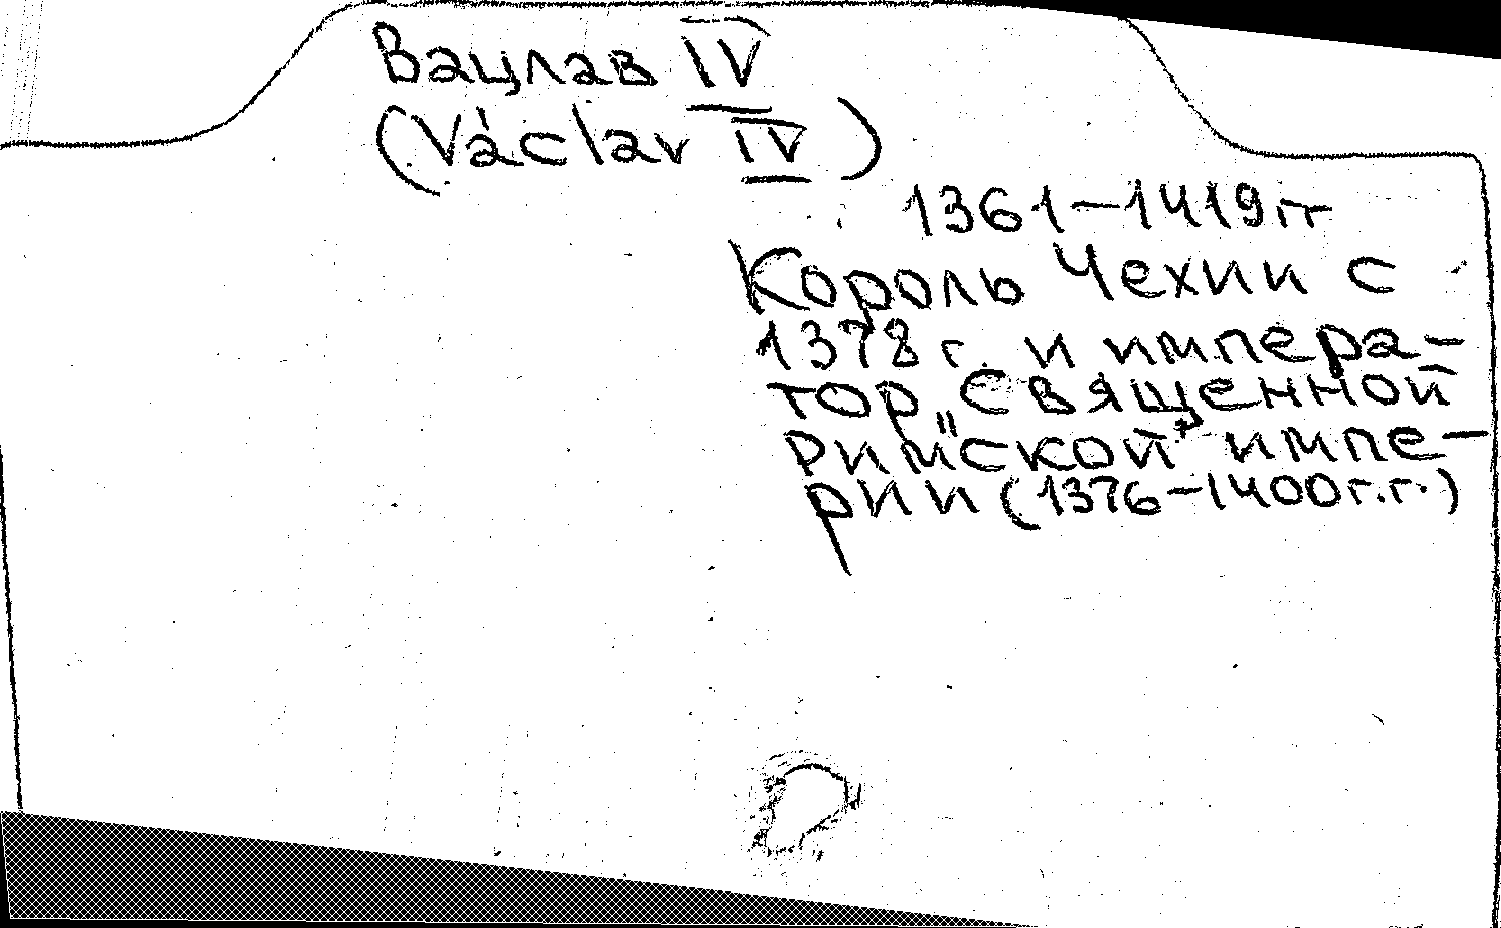 Вацлав IV
(Václav IV)
1361–1419гг
Король Чехии с
1378 г. и импера-
тор „Священной
Римской" импе-
рии (1376–1400г.г.)